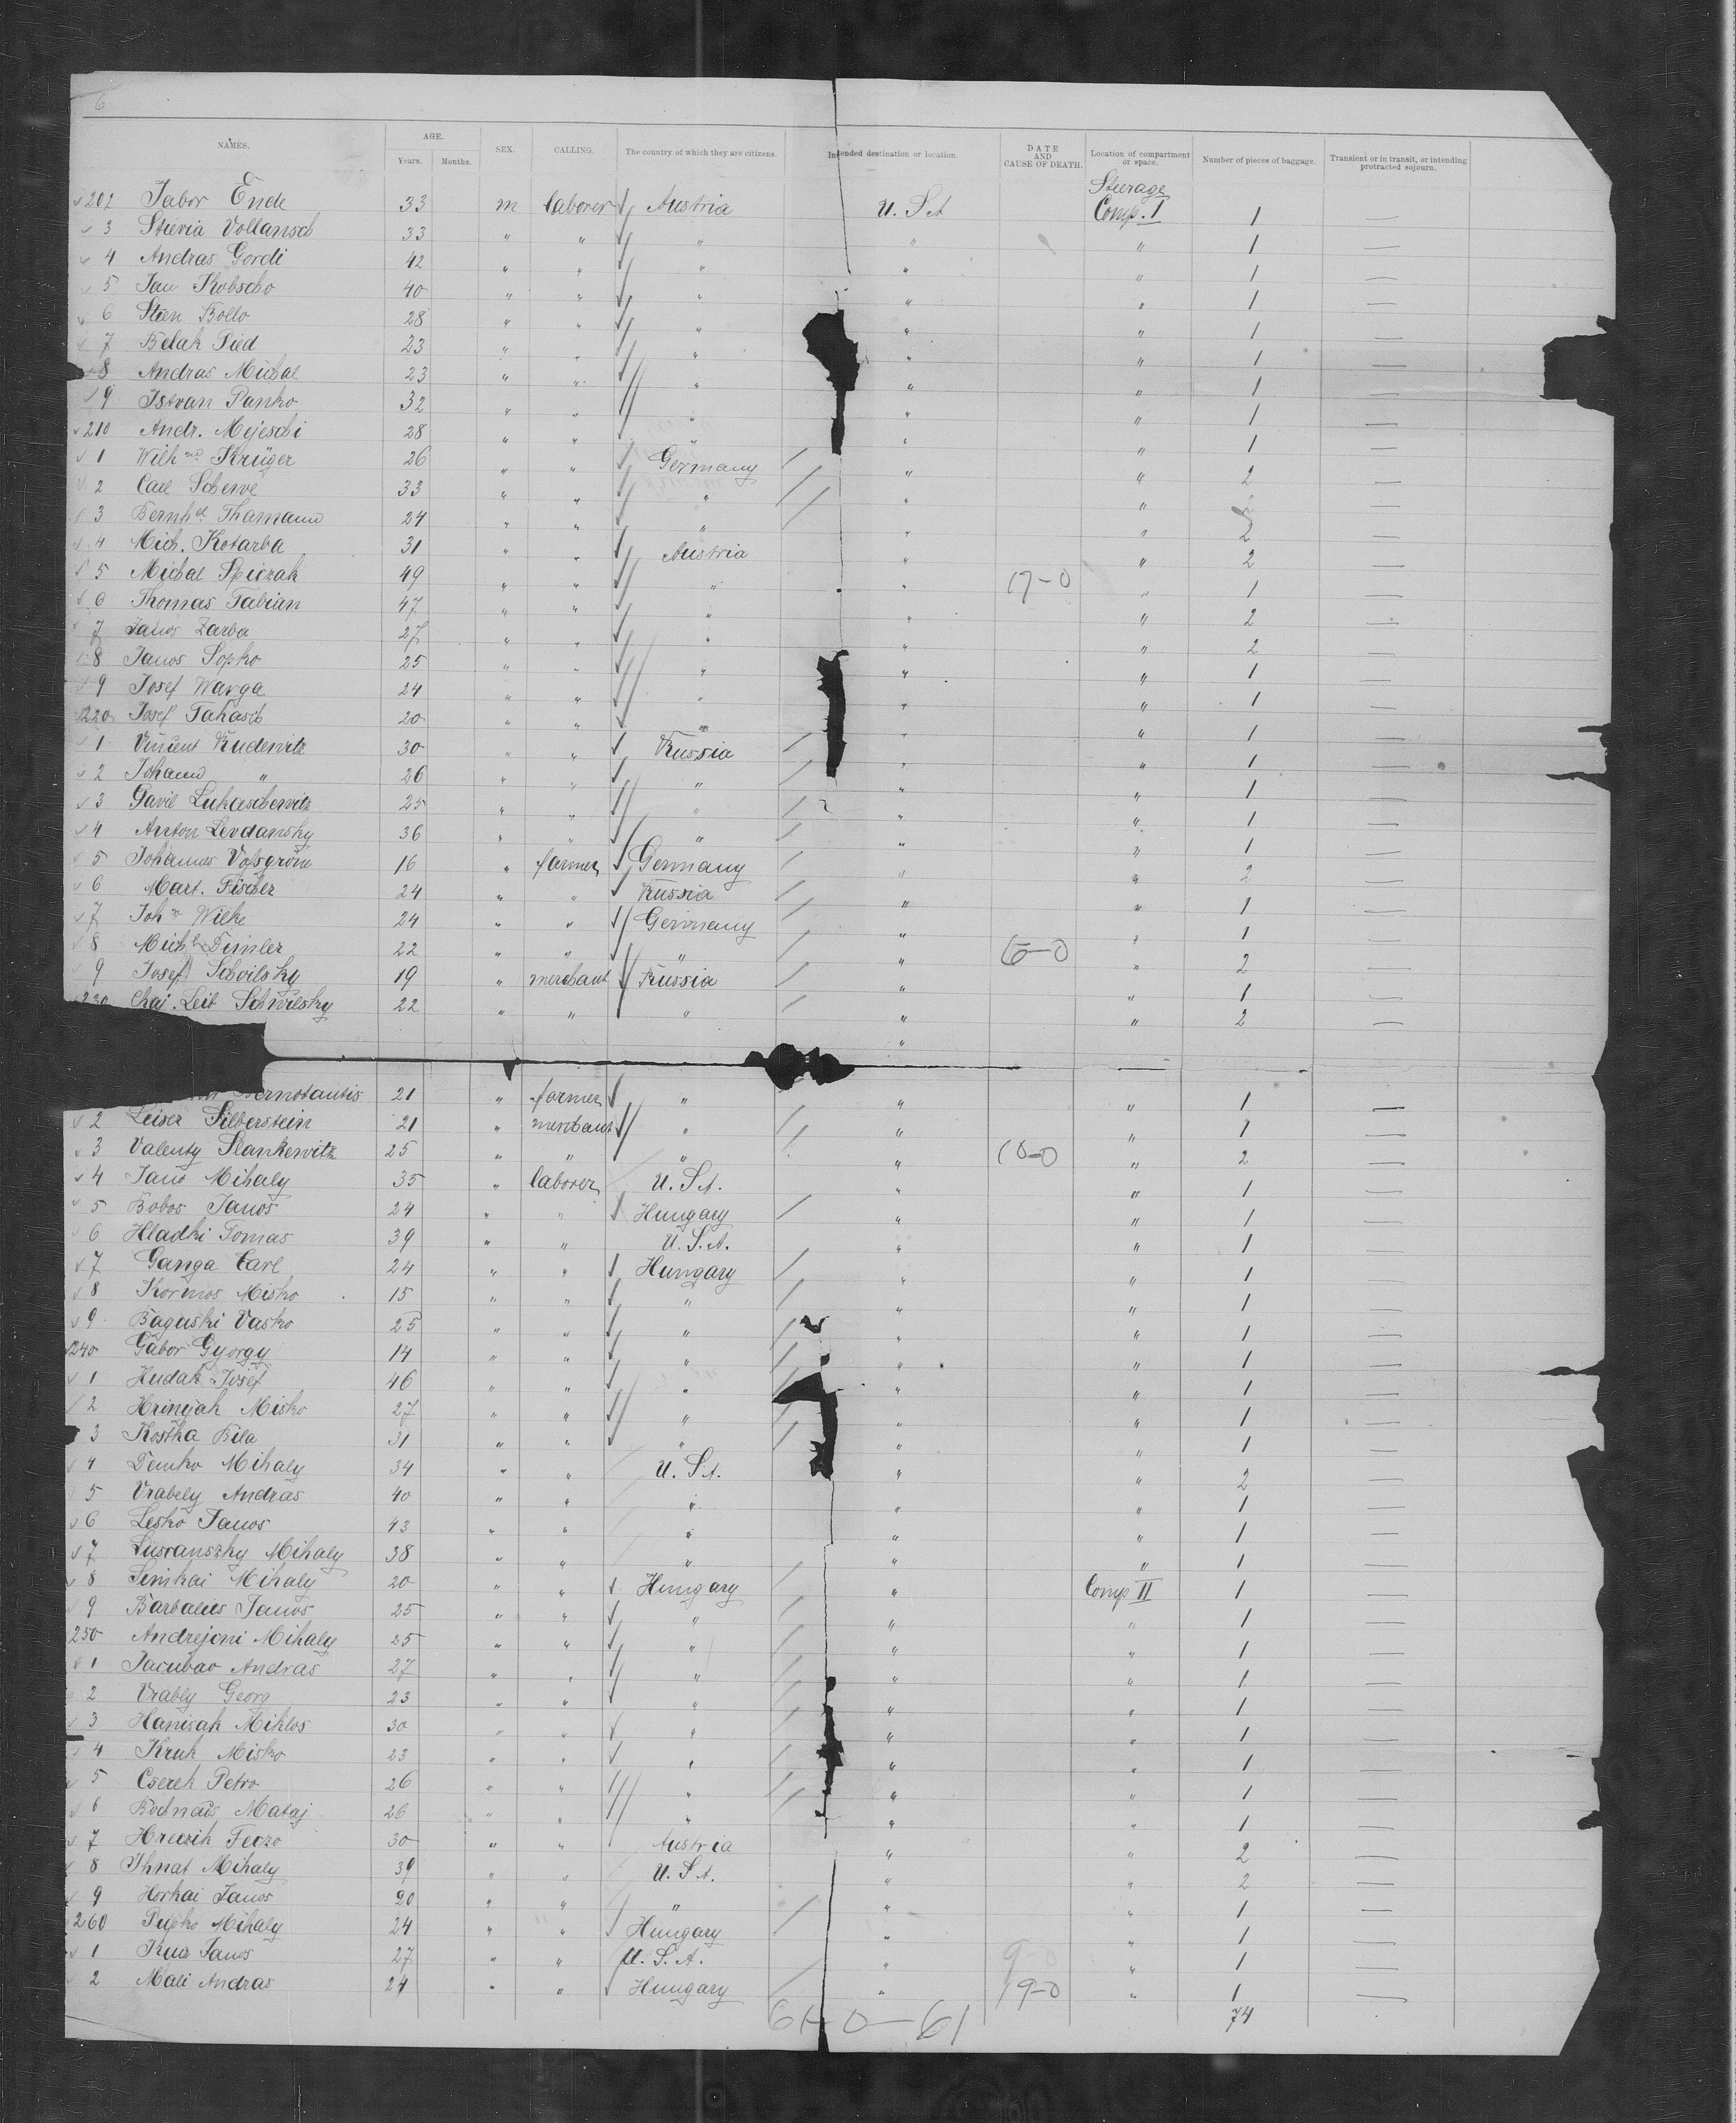 6
NAMES. AGE. Years. Months. SEX. CALLING. The country of which they are citizens. Intended destination or location. DATE AND CAUSE OF DEATH. Location of compartment or space. Number of pieces of baggage. Transient or in transit, or intending protracted sojourn.
Steerage
202 Tabor Ende 33 m laborer Austria U. S. A Comp. I 1 —
3 Stevia Vollansch 33 " " " " " 1 —
4 Andras Gordi 42 " " " " " 1 —
5 Jan Kobscho 40 " " " " " 1 —
6 Stien Bollo 28 " " " " " 1 —
7 Belah Sied 23 " " " " " 1 —
8 Andras Michal 23 " " " " " 1 —
9 Istvan Panko 32 " " " " " 1 —
210 Andr. Mejeschi 28 " " " " " 1 —
1 Wilhm Krüger 26 " " Germany " " 2 —
2 Carl Scherve 33 " " " " " —
3 Bernhd Thamann 24 " " " " " 2 —
4 Mich. Kotarba 31 " " Austria " " 2 —
5 Michal Spiczak 49 " " " " 17-0 " 1 —
6 Thomas Fabian 47 " " " " " 2 —
7 Janos Zarba 27 " " " " " 2 —
8 Janos Sopko 25 " " " " " 1 —
9 Josef Warga 24 " " " " " 1 —
220 Josef Takasch 20 " " " " " 1 —
1 Vincent Rudewitz 30 " " Russia " " 1 —
2 Johann " 26 " " " " " 1 —
3 Gavil Lukaschewitz 25 " " " " " 1 —
4 Anton Levdansky 36 " " " " " 1 —
5 Johannes 16 " farmer Germany " " 2 —
6 Mart. Fischer 24 " " Russia " " 1 —
7 John Wilke 24 " " Germany " " 1 —
8 Michl Dimler 22 " " " " 6-0 " 2 —
9 Josef Schvilsky 19 " merchant Russia " " 1 —
230 Chaj. Leib Schwilsky 22 " " " " " 2 —
"
ernotautis 21 " farmer " " " 1 —
2 Leiser Silberstein 21 " merchant " " " 1 —
3 Valenty Stankewitz 25 " " " " 10-0 " 2 —
4 Jano Mihaly 35 " laborer U. S. A. " " 1 —
5 Bobos Janos 24 " " Hungary " " 1 —
6 Hladki Tomas 39 " " U. S. A. " " 1 —
7 Ganga Carl 24 " " Hungary " " 1 —
8 Kormos Misko 15 " " " " " 1 —
9 Baguski Vasko 25 " " " " " 1 —
240 Gabor Gyorgy 14 " " " " " 1 —
1 Hudak Josef 46 " " " " " 1 —
2 Hrinyak Misko 27 " " " " " 1 —
3 Kostka Bila 31 " " " " " 1 —
4 Demko Mihaly 34 " " U. S. A. " " 2 —
5 Vrabely Andras 40 " " " " " 1 —
6 Lesko Janos 43 " " " " " 1 —
7 Lusranszky Mihaly 38 " " " " " 1 —
8 Simkai Mihaly 20 " " Hungary " Comp II 1 —
9 Barbalics Janos 25 " " " " " 1 —
250 Andrejoni Mihaly 25 " " " " " 1 —
1 Jacubao Andras 27 " " " " " 1 —
2 Vrably Georg 23 " " " " " 1 —
3 Hanisak Miklos 30 " " " " " 1 —
4 Kruk Misko 23 " " " " " 1 —
5 Cserek Petro 26 " " " " " 1 —
6 Bodnais Mataj 26 " " " " " 1 —
7 Hreczik Feczo 30 " " Austria " " 2 —
8 Ihnat Mihaly 39 " " U. S. A. " " 2 —
9 Horkai Janos 20 " " " " " 1 —
260 Pupko Mihaly 24 " " Hungary " " 1 —
1 Janos 27 " " U. S. A. " 9 " 1 —
2 Mali Andras 24 " " Hungary " 19-0 " 1 —
61-0-61 74